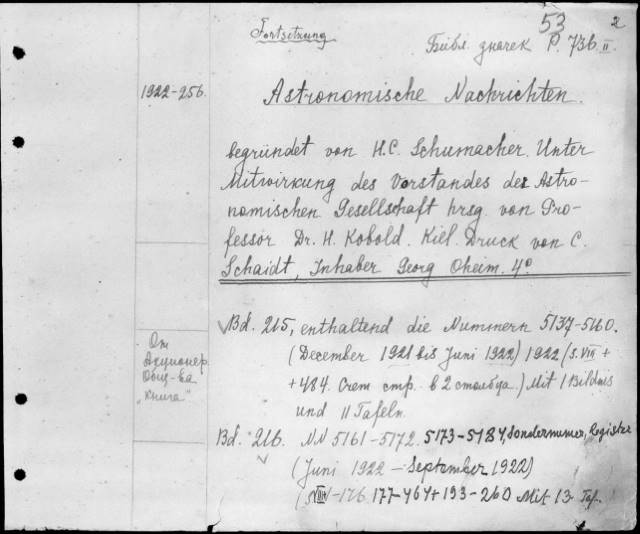 53 2
Fortsetzung
Библ. значек P. 736 II.
1922-256.
Astronomische Nachrichten.
begründet von H.C. Schumacher. Unter
Mitwirkung des Vorstandes der Astro-
nomischen Gesellschaft hrsg. von Pro-
fessor Dr. H. Kobold. Kiel. Druck von C.
Schaidt, Inhaber Georg Oheim. 4°
Bd. 215, enthaltend die Nummern 5137-5160.
(December 1921 bis Juni 1922) 1922 (S. VIII +
+ 484. Счет стр. в 2 столбца.) Mit 1 Bildnis
und 11 Tafeln.
От
Акционер.
Общ-ва
"Книга"
Bd. 216. NN 5161-5172. 5173-5184, Sondernumer, Register
(Juni 1922 - September 1922)
177-464+193-260 Mit 13 Taf.